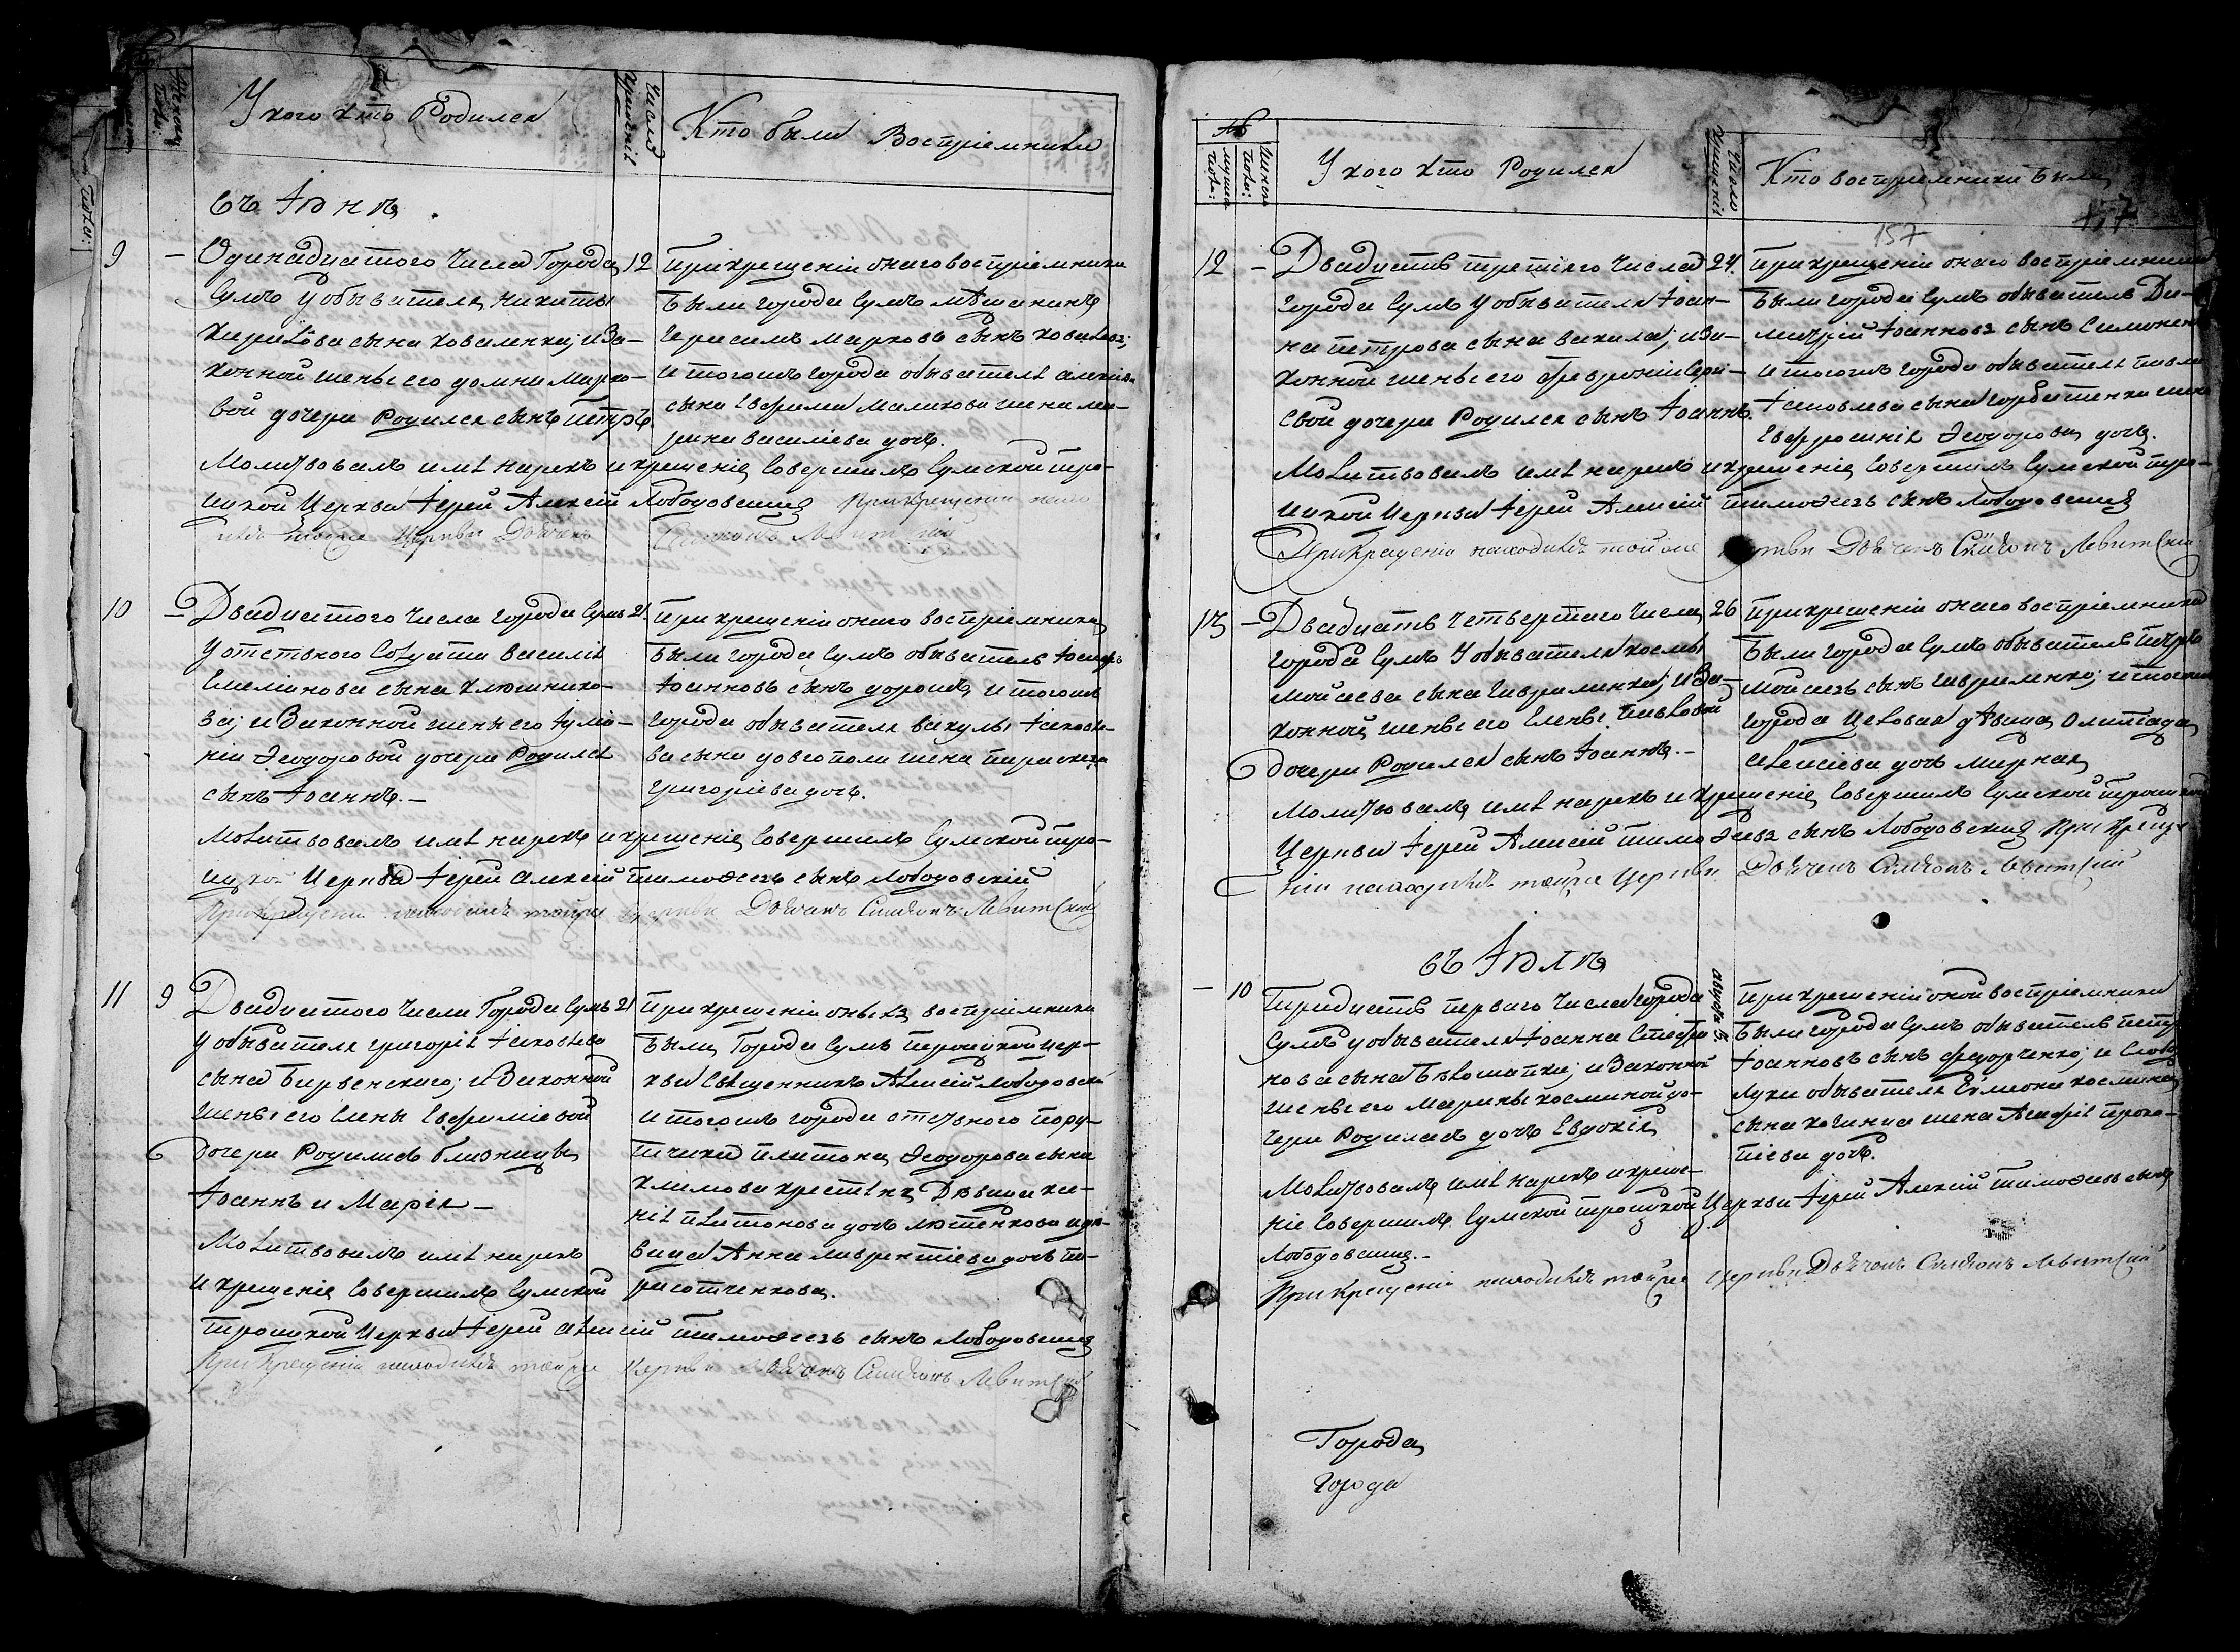 У кого кто Родился
Число крещенія
Кто были Воспріемники
въ Іюнѣ
9 – Одинадцатого числа Города 12
Сумъ у обывателя Никиты
Харитова сына Коваленка; и за-
конной жены его Домны Марко-
вой дочери Родился сынъ Петръ
При крещеніи онаго воспріемники
были города Сумъ мѣщанинъ
Герасимъ Марковъ сынъ Ковалевъ;
и тогожъ города обывателя
сына Ефрема Маликова жена Ма-
рина Василіева дочь.
Молитвовалъ имя нарекъ и крещеніе совершилъ Сумской Тро-
ицкой Церкви Іерей Алексій Лободовскій При крещеніи
тойже Церкви Дьячокъ Симеонъ Левитскій
10 – Двадцатого числа города Сумъ 21
У отставного Солдата Василія
Емеліанова сына Ключнико-
ва; и законной жены его Іуліа-
ніи Ѳеодоровой дочери Родился
сынъ Іоаннъ. –
При крещеніи онаго воспріемники
были города Сумъ обыватель Іосифъ
Іоанновъ сынъ и тогожъ
города обывателя Вакулы Іаковле-
ва сына Довгополи жена Параскева
Григоріева дочь.
Молитвовалъ имя нарекъ и крещеніе совершилъ Сумской Тро-
ицкой Церкви Іерей Алексій Тимоѳеевъ сынъ Лободовскій
При крещеніи находился тойже Церкви Дьячокъ Симеонъ Левитскій
11 9 Двадцатого числа Города Сумъ 21
У обывателя Григорія Іаковлева
сына Бирвенского; и законной
жены его Елены Евфиміевой
дочери Родились близнецы
Іоаннъ и Марія –
При крещеніи оныхъ воспріемники
были Города Сумъ Троицкой цер-
кви священникъ Алексій Лободовскій
и тогожъ города отставного пору-
тчика Платона Ѳеодорова сына
Климова Дѣвица Ксе-
нія Платонова дочь и дѣ-
вица Анна Лаврентіева дочь
Молитвовалъ имя нарекъ
и крещеніе совершилъ Сумской
Троицкой Церкви Іерей Алексій Тимоѳеевъ сынъ Лободовскій
При крещеніи находился тойже Церкви Дьячокъ Симеонъ Левитскій
№
Мужеска пола:
Женска пола:
У кого кто Родился
Число Крещенія
Кто воспріемники были
157
12 – Двадцать третіяго числа 24.
города Сумъ У обывателя Іоан-
на Петрова сына Вакула; и за-
конной жены его Февроніи
дочери Родился сынъ Іоаннъ.
При крещеніи онаго воспріемники
были города Сумъ обыватель Ди-
митрій Іоанновъ сынъ Симонен
и тогожъ города обывателя Павла
Іаковлева сына Горбатенка жена
Евфросинія Ѳеодорова дочь.
Молитвовалъ имя нарекъ и крещеніе совершилъ Сумской Тро-
ицкой Церкви Іерей Алексій Тимоѳеевъ сынъ Лободовскій
При крещеніи находился тойже Церкви Дьячокъ Симеонъ Левитскій
13 – Двадцать четвертаго числа 26
города Сумъ У обывателя Космы
Мойсеева сына Гавриленка; и за-
конной жены его Елены Павловой
дочери Родился сынъ Іоаннъ. –
При крещеніи онаго воспріемники
были города Сумъ обыватель Петръ
Мойсеевъ сынъ Гавриленко; и тогожъ
города дѣвица Олимпіада
Алексіева дочь
Молитвовалъ имя нарекъ и крещеніе совершилъ Сумской Троицкой
Церкви Іерей Алексій Тимоѳеевъ сынъ Лободовскій При креще-
ніи находился тойже Церкви Дьячокъ Симеонъ Левитскій
въ Іюлѣ
– 10 Тридцать перваго числа города
Сумъ у обывателя Іоанна Стефа-
нова сына Бѣлошапки; и законной
жены его Марины Косминой до-
чери Родилась дочь Евдокія
Августа
При крещеніи оной воспріемники
были города Сумъ обыватель Петръ
Іоанновъ сынъ Федорченко; и
обывателя Косм
сына жена Агафія Проко-
піева дочь.
Молитвовалъ имя нарекъ и креще-
ніе совершилъ Сумской Троицкой Церкви Іерей Алексій Тимоѳеевъ сынъ
Лободовскій. –
При крещеніи находился тойже Церкви Дьячокъ Симеонъ Левитскій
Города
Города